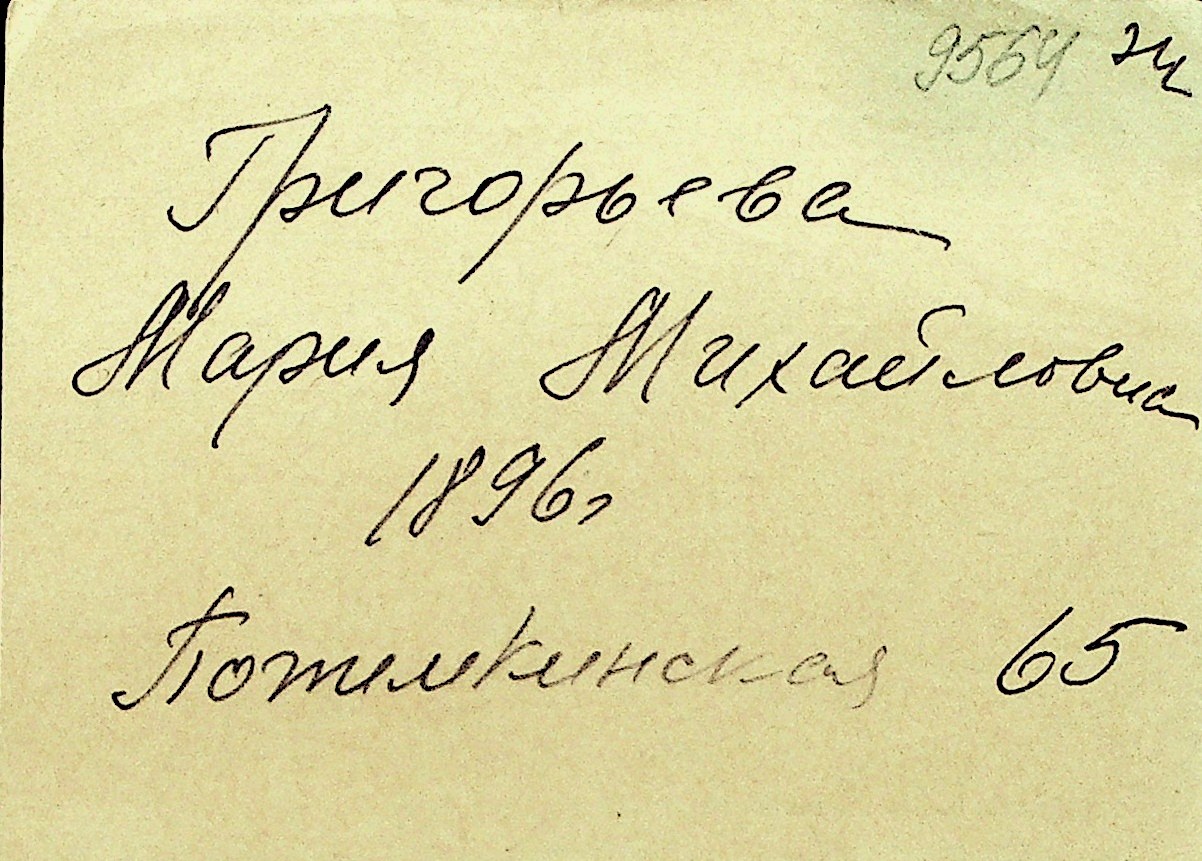 9564
Григорьева
Мария Михайловна
1896г
Потемкинская 65